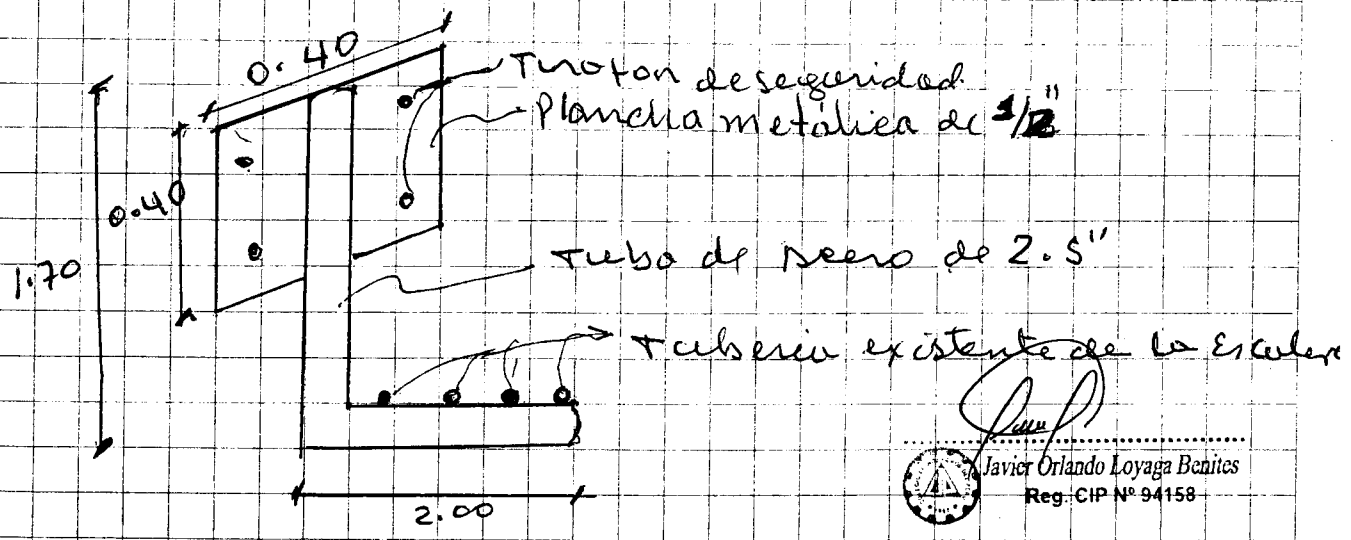 0.40
Tirofon de seguridad
Plancha metálica de 1/2"
0.40
1.70
Tubo de acero de 2.5"
Tuberia existente de la Escalera
2.00
Javier Orlando Loyaga Benites
Reg. CIP Nº 94158